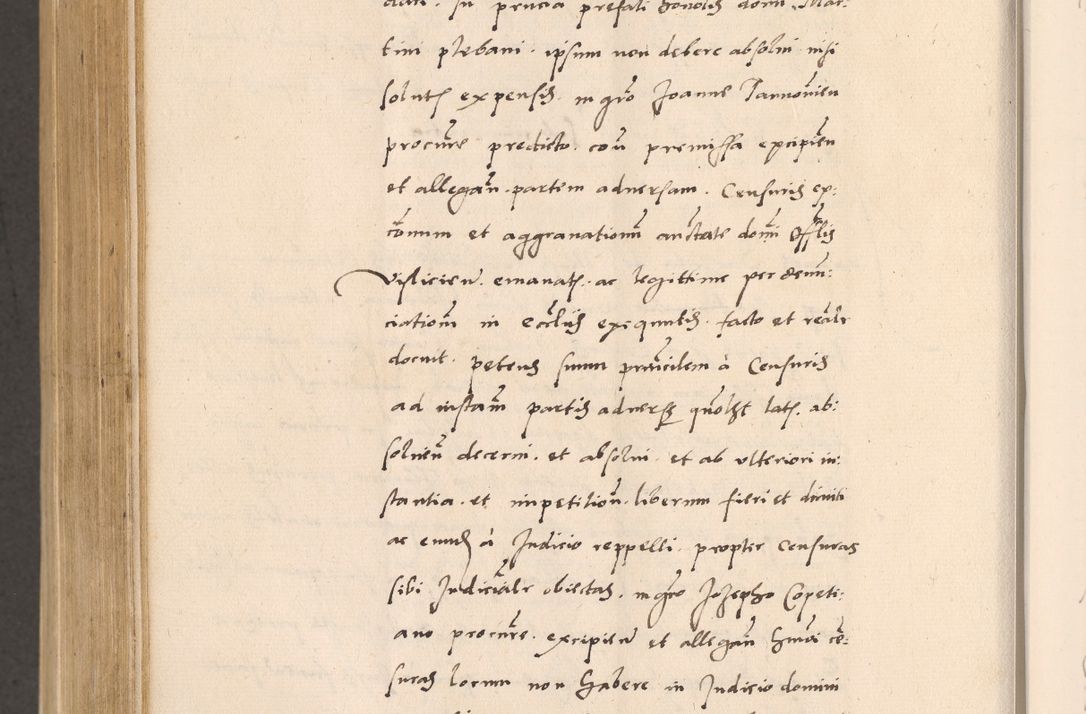 dari. In prucia prefati honolis domi Mar:
tini plebani. ipsum non debere absolui nisi
solutis expensis. mgro Joanne Tarnovien
procure predicto. con premissa excipien
et allegan. partem aduersam. Censuris ex:
comum et aggranationum auctate domi Offlis
Visliciens. emanatis. ac legittime per denun:
ciationem in ecclijs exequutis. facto et realr
docuit. petens suum principalem à Censuris
ad instam partis aduerse quolzt latis. ab:
soluen decerni. et absolui. et ab vlteriori in:
stantia. et impetition. liberum fieri et dimitti
ac eundem à Judicio reppelli. propter censuras
sibi Judicialr obiectas. mgro Josepho Copeti:
ano procure. excipien et allegan hmoi ce:
suras locum non habere in Judicio domini